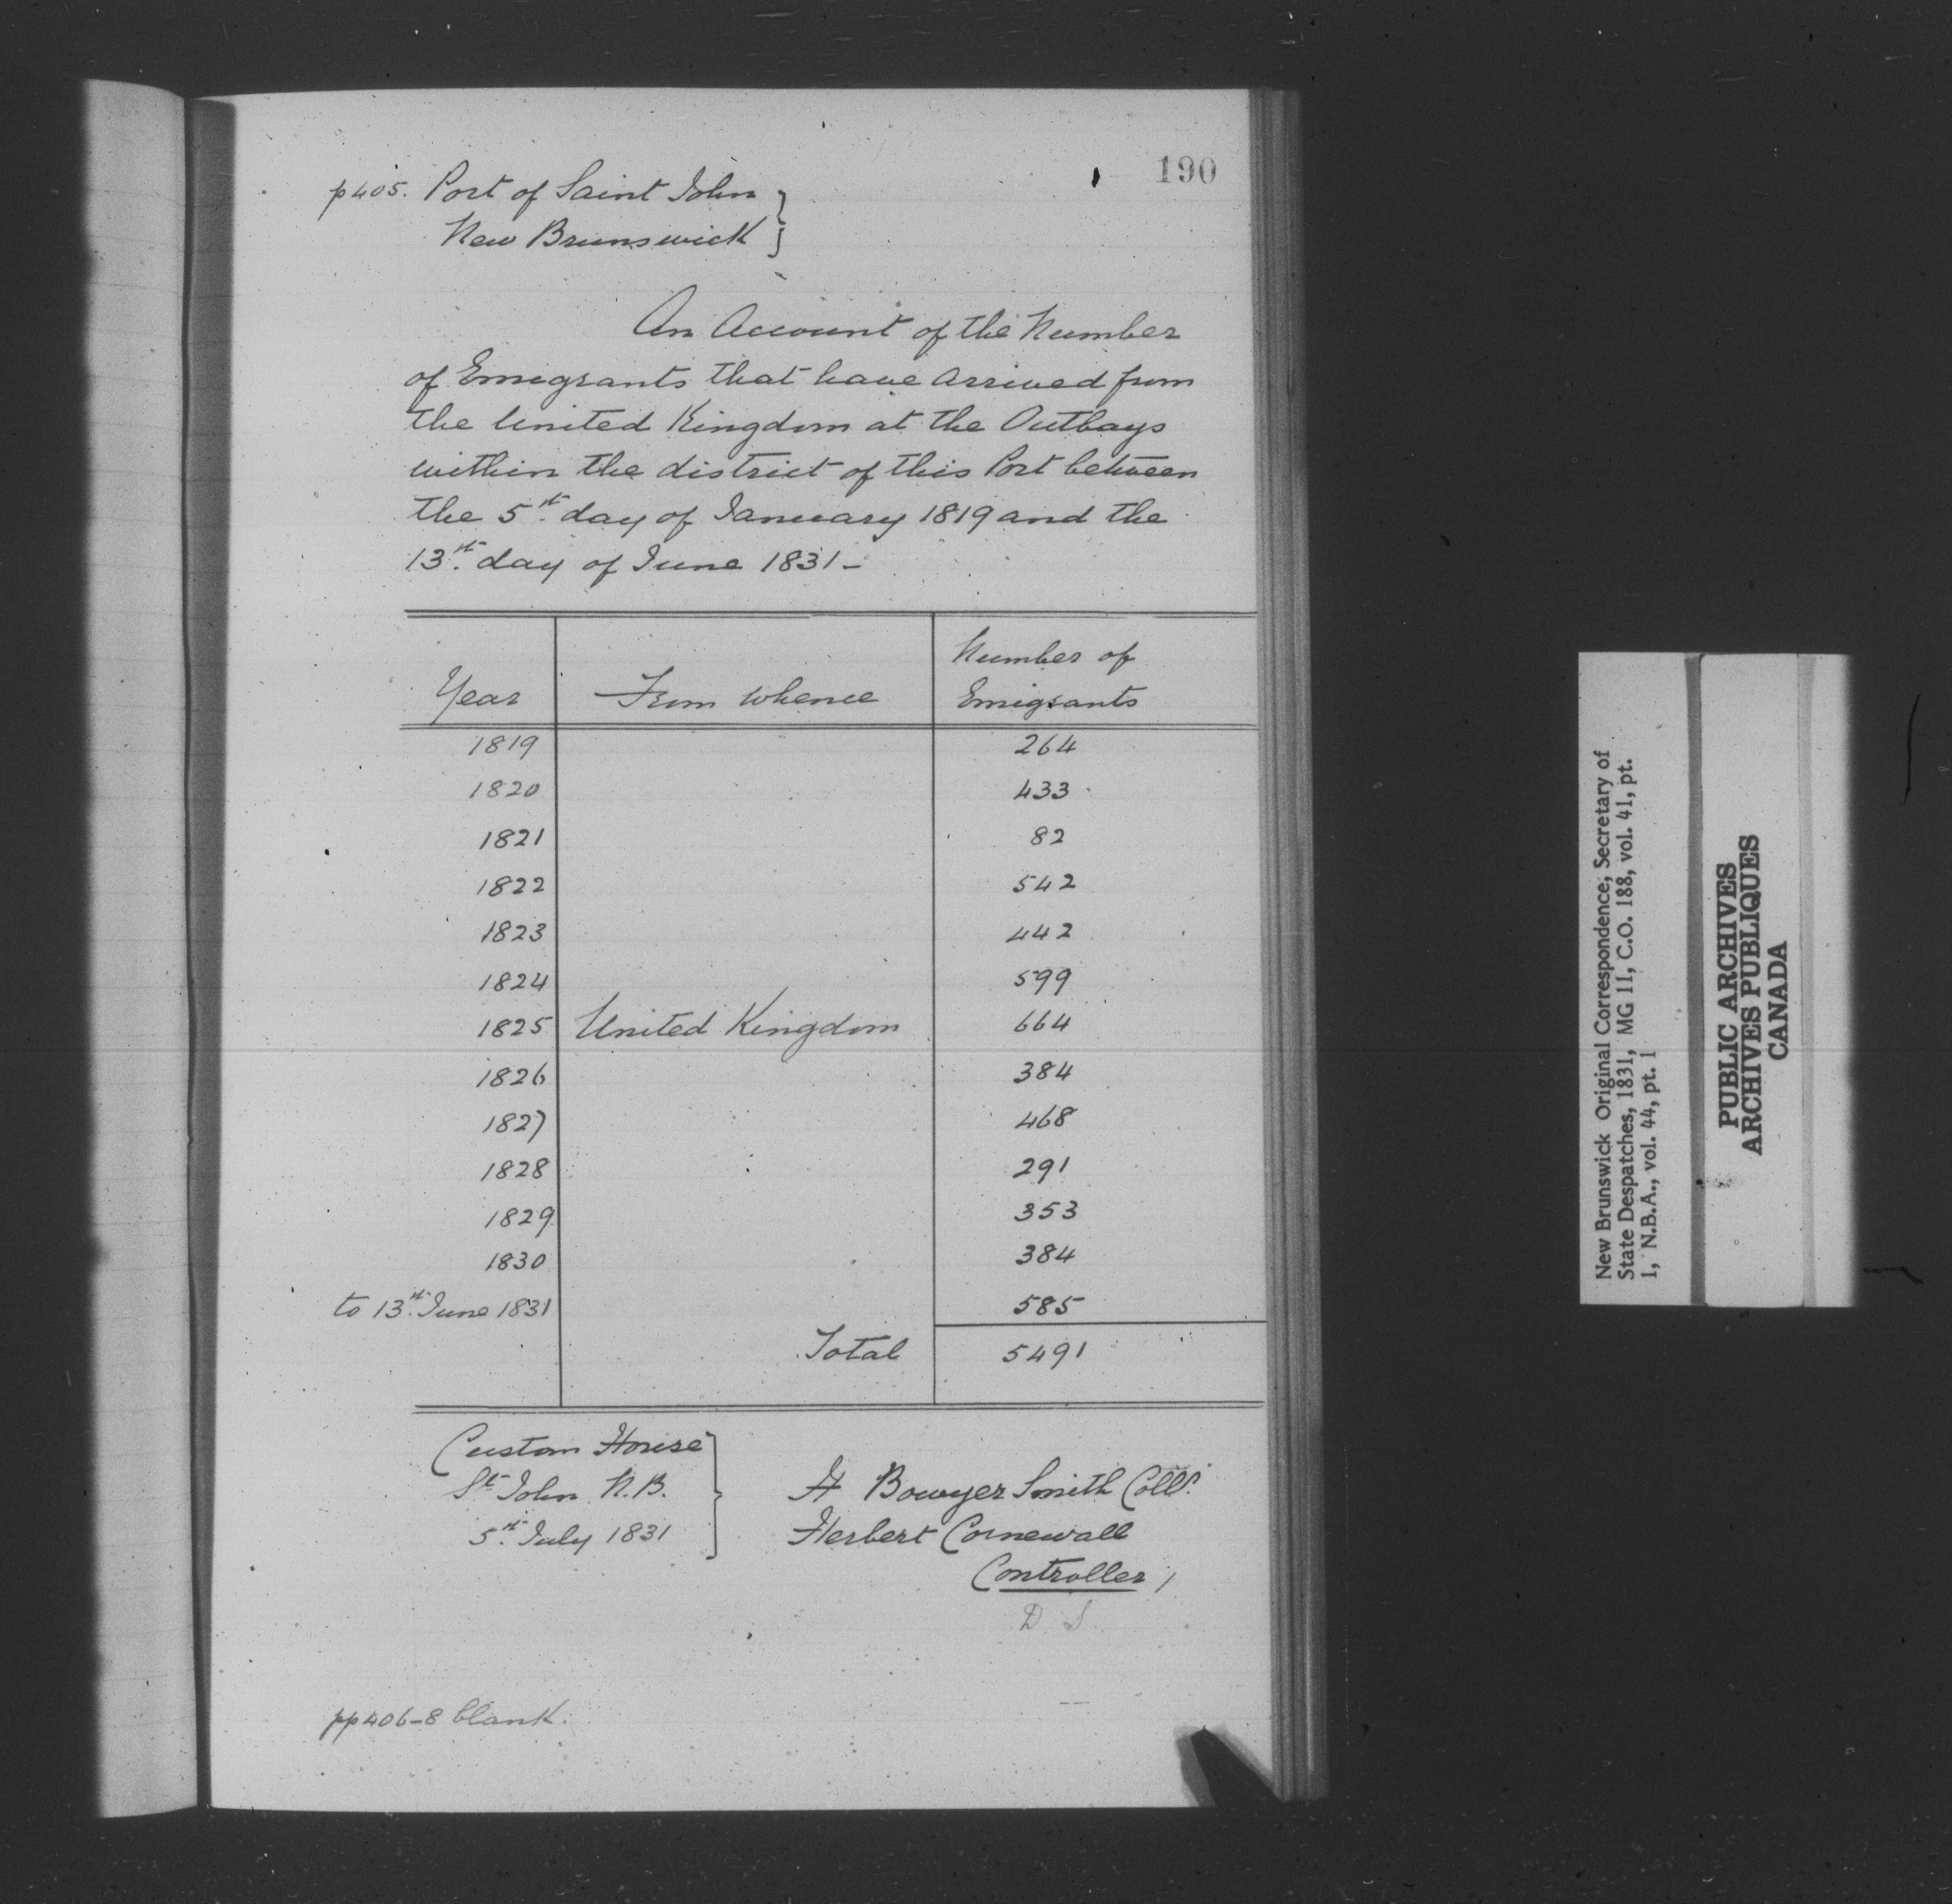 190
p405. Port of Saint John }
New Brunswick }
An Account of the Number
of Emigrants that have arrived from
the United Kingdom at the Outbays
within the district of this Port between
the 5th day of January 1819 and the
13th day of June 1831 -
Year From whence Number of Emigrants
1819 264
1820 433
1821 82
1822 542
1823 442
1824 599
1825 United Kingdom 664
1826 384
1827 468
1828 291
1829 353
1830 384
to 13th June 1831 585
Total 5491
Custom House
St John N.B.
5th July 1831
H Bowyer Smith Collr
Herbert Cornewall
Controller /
D S
pp406-8 blank.
New Brunswick Original Correspondence, Secretary of
State Despatches, 1831, MG 11, C.O. 188, vol. 41, pt.
1, N.B.A., vol. 44, pt. 1
PUBLIC ARCHIVES
ARCHIVES PUBLIQUES
CANADA